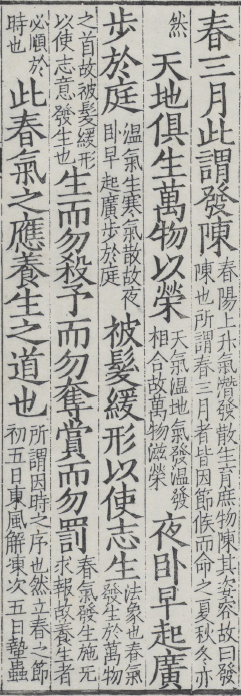 春三月此謂發陳
春陽上升氣潛發散生育庶物陳其姿容故曰發
陳也所謂春三月者皆因節候而命之夏秋冬亦
然
天地俱生萬物以榮
天氣溫地氣發溫發
相合故萬物滋榮
夜卧早起廣
步於庭
溫氣生寒氣散故夜
卧早起廣步於庭
被髮緩形以使志生
法象也春氣
發生於萬物
之首故被髮緩形
以使志意發生也
生而勿殺予而勿奪賞而勿罰
春氣發生施无
求報故養生者
必順於
時也
此春氣之應養生之道也
所謂因時之序也然立春之節
初五日東風解凍次五日蟄蟲